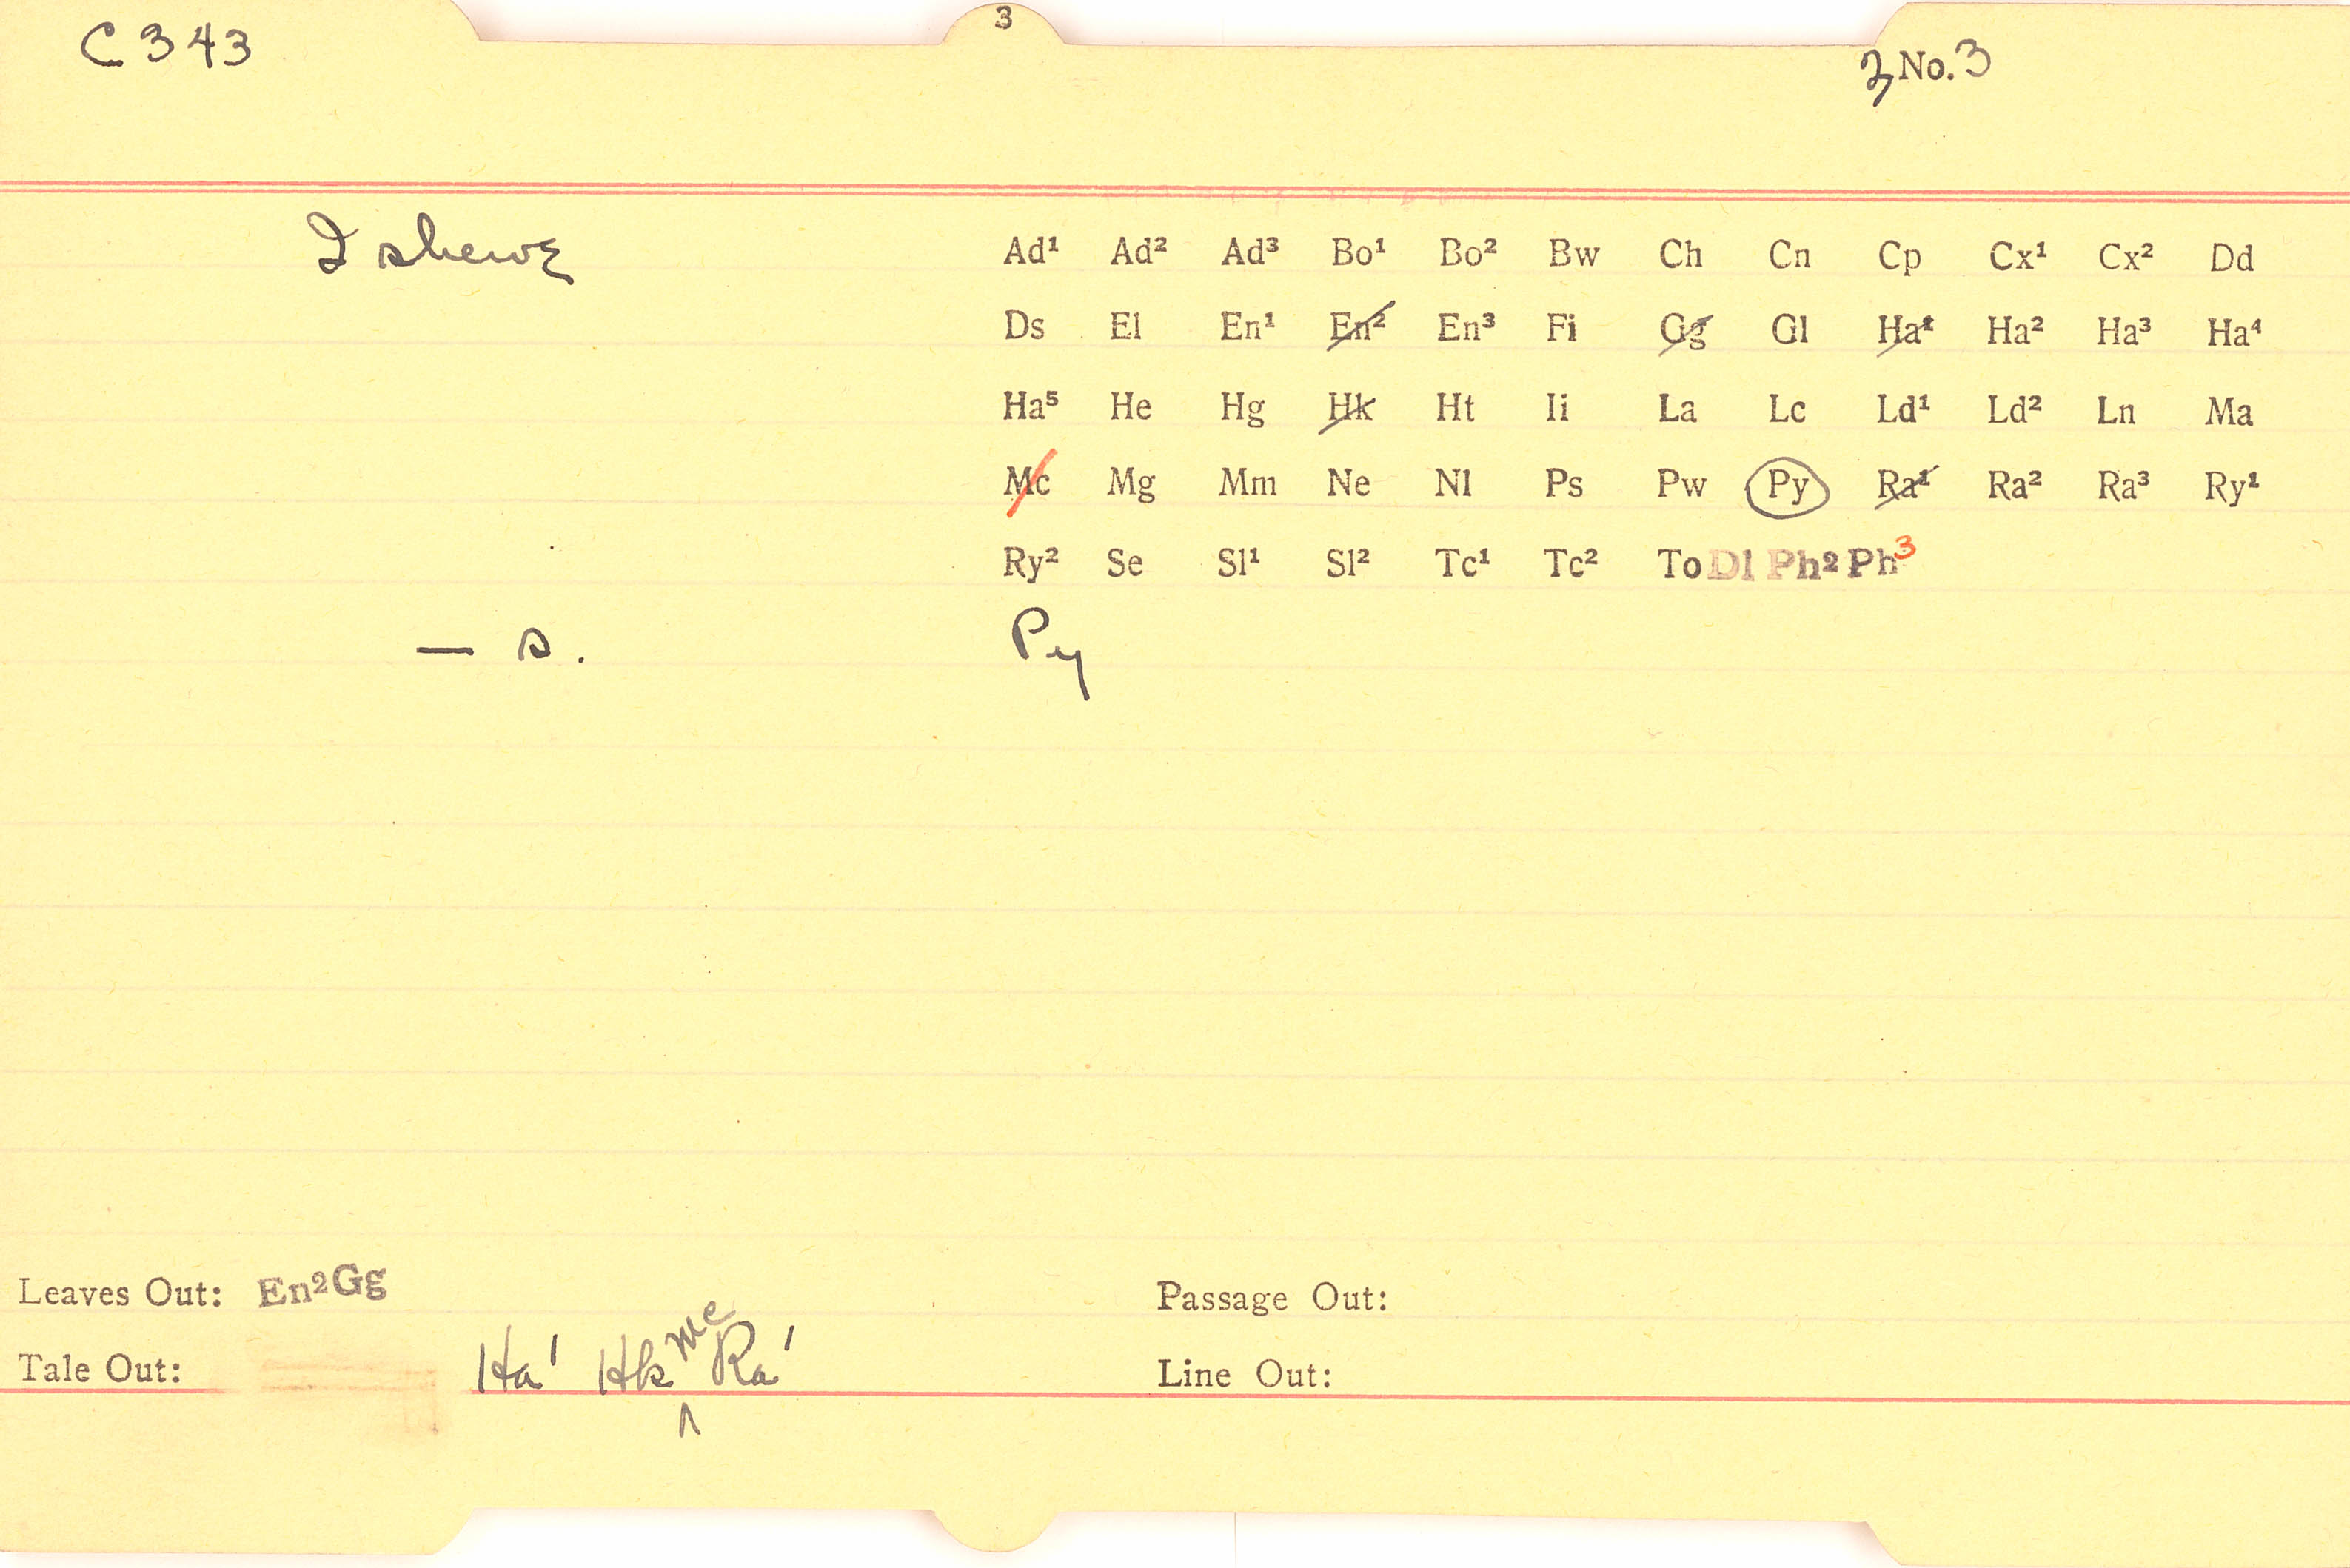 3
C 343
3 No. 3
I shewe Ad¹ Ad² Ad³ Bo¹ Bo² Bw Ch Cn Cp Cx¹ Cx² Dd
Ds El En¹ En² En³ Fi Gg Gl Ha¹ Ha² Ha³ Ha⁴
Ha⁵ He Hg Hk Ht Ii La Lc Ld¹ Ld² Ln Ma
Mc Mg Mm Ne Nl Ps Pw Py Ra¹ Ra² Ra³ Ry¹
Ry² Se Sl¹ Sl² Tc¹ Tc² To Dl Ph² Ph³
— s. Py
Leaves Out: En²Gg Passage Out:
Tale Out: Ha¹ Hk Mc Ra¹ Line Out: